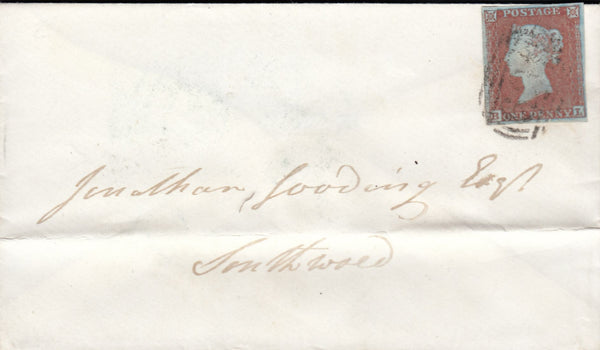 POSTAGE
B ONE PENNY L
Jonathan Gooding Esqr
Southwold